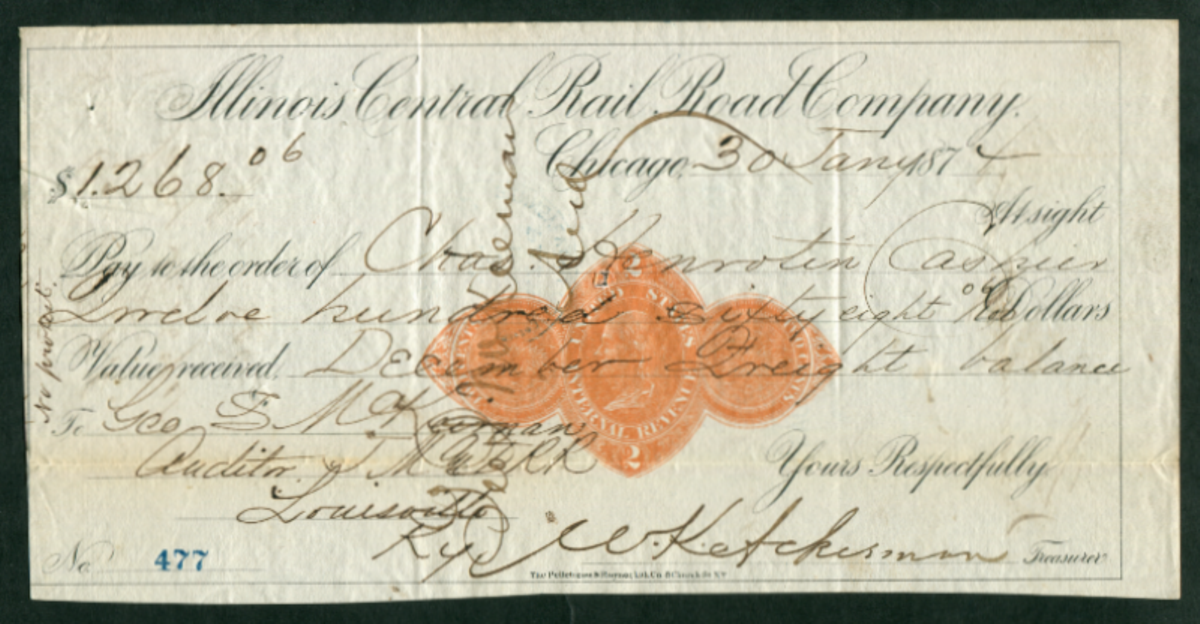 Illinois Central Rail Road Company.
Chicago 30 Jany 1874
$1.268.06
At sight
Pay to the order of Chas. Henrotin Cashier
Twelve hundred sixty eight 06 Dollars
Value received December Freight balance
To Geo S. McKiernan
Auditor
Louisville
Ky
Yours Respectfully
W.K. Ackerman Treasurer
No 477
No protest
UNITED STATES
INTERNAL REVENUE
2
2